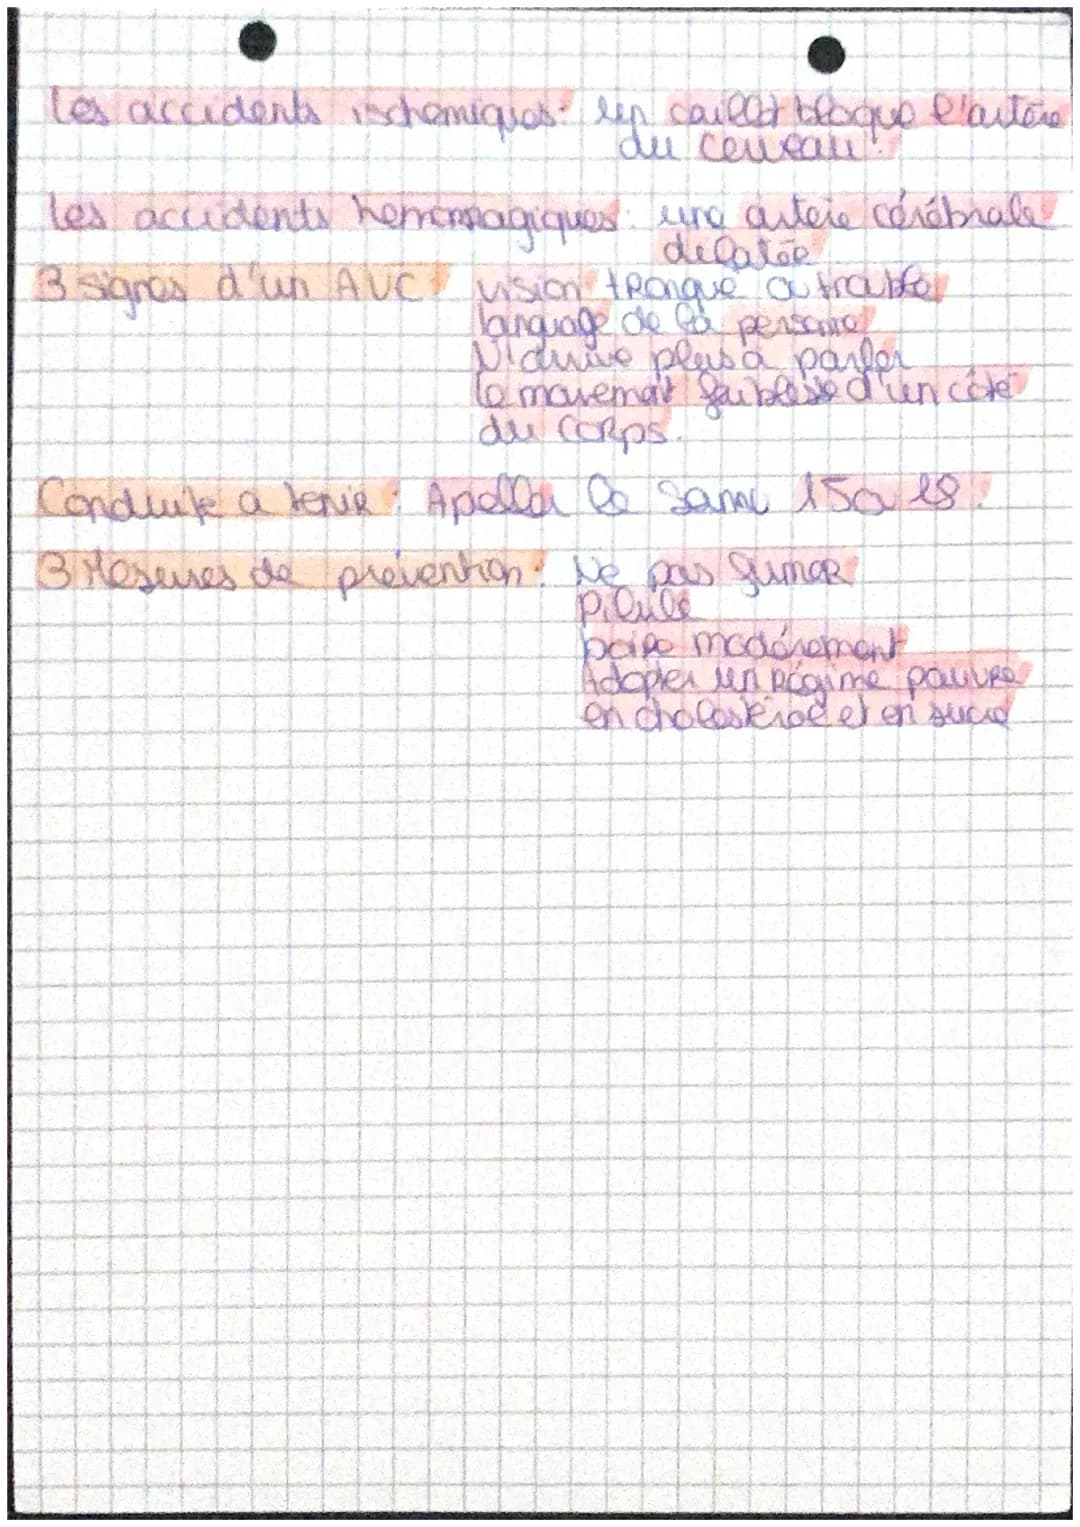 Les accidents ischemiques: un caillot bloque l'artère
du cerveau.
Les accidents hemorragiques: une arterie cérébrale
delatée
3 signes d'un AVC: vision
language de la personne
N'arrive plus a parler
le mouvement faiblesse d'un côté
du corps.
Conduite a tenir: Apeller le Samu 15 a 18.
3 Mesures de prévention: Ne pas fumer
Pilule
boire modérement
Adopter un régime pauvre
en cholesterol et en sucre